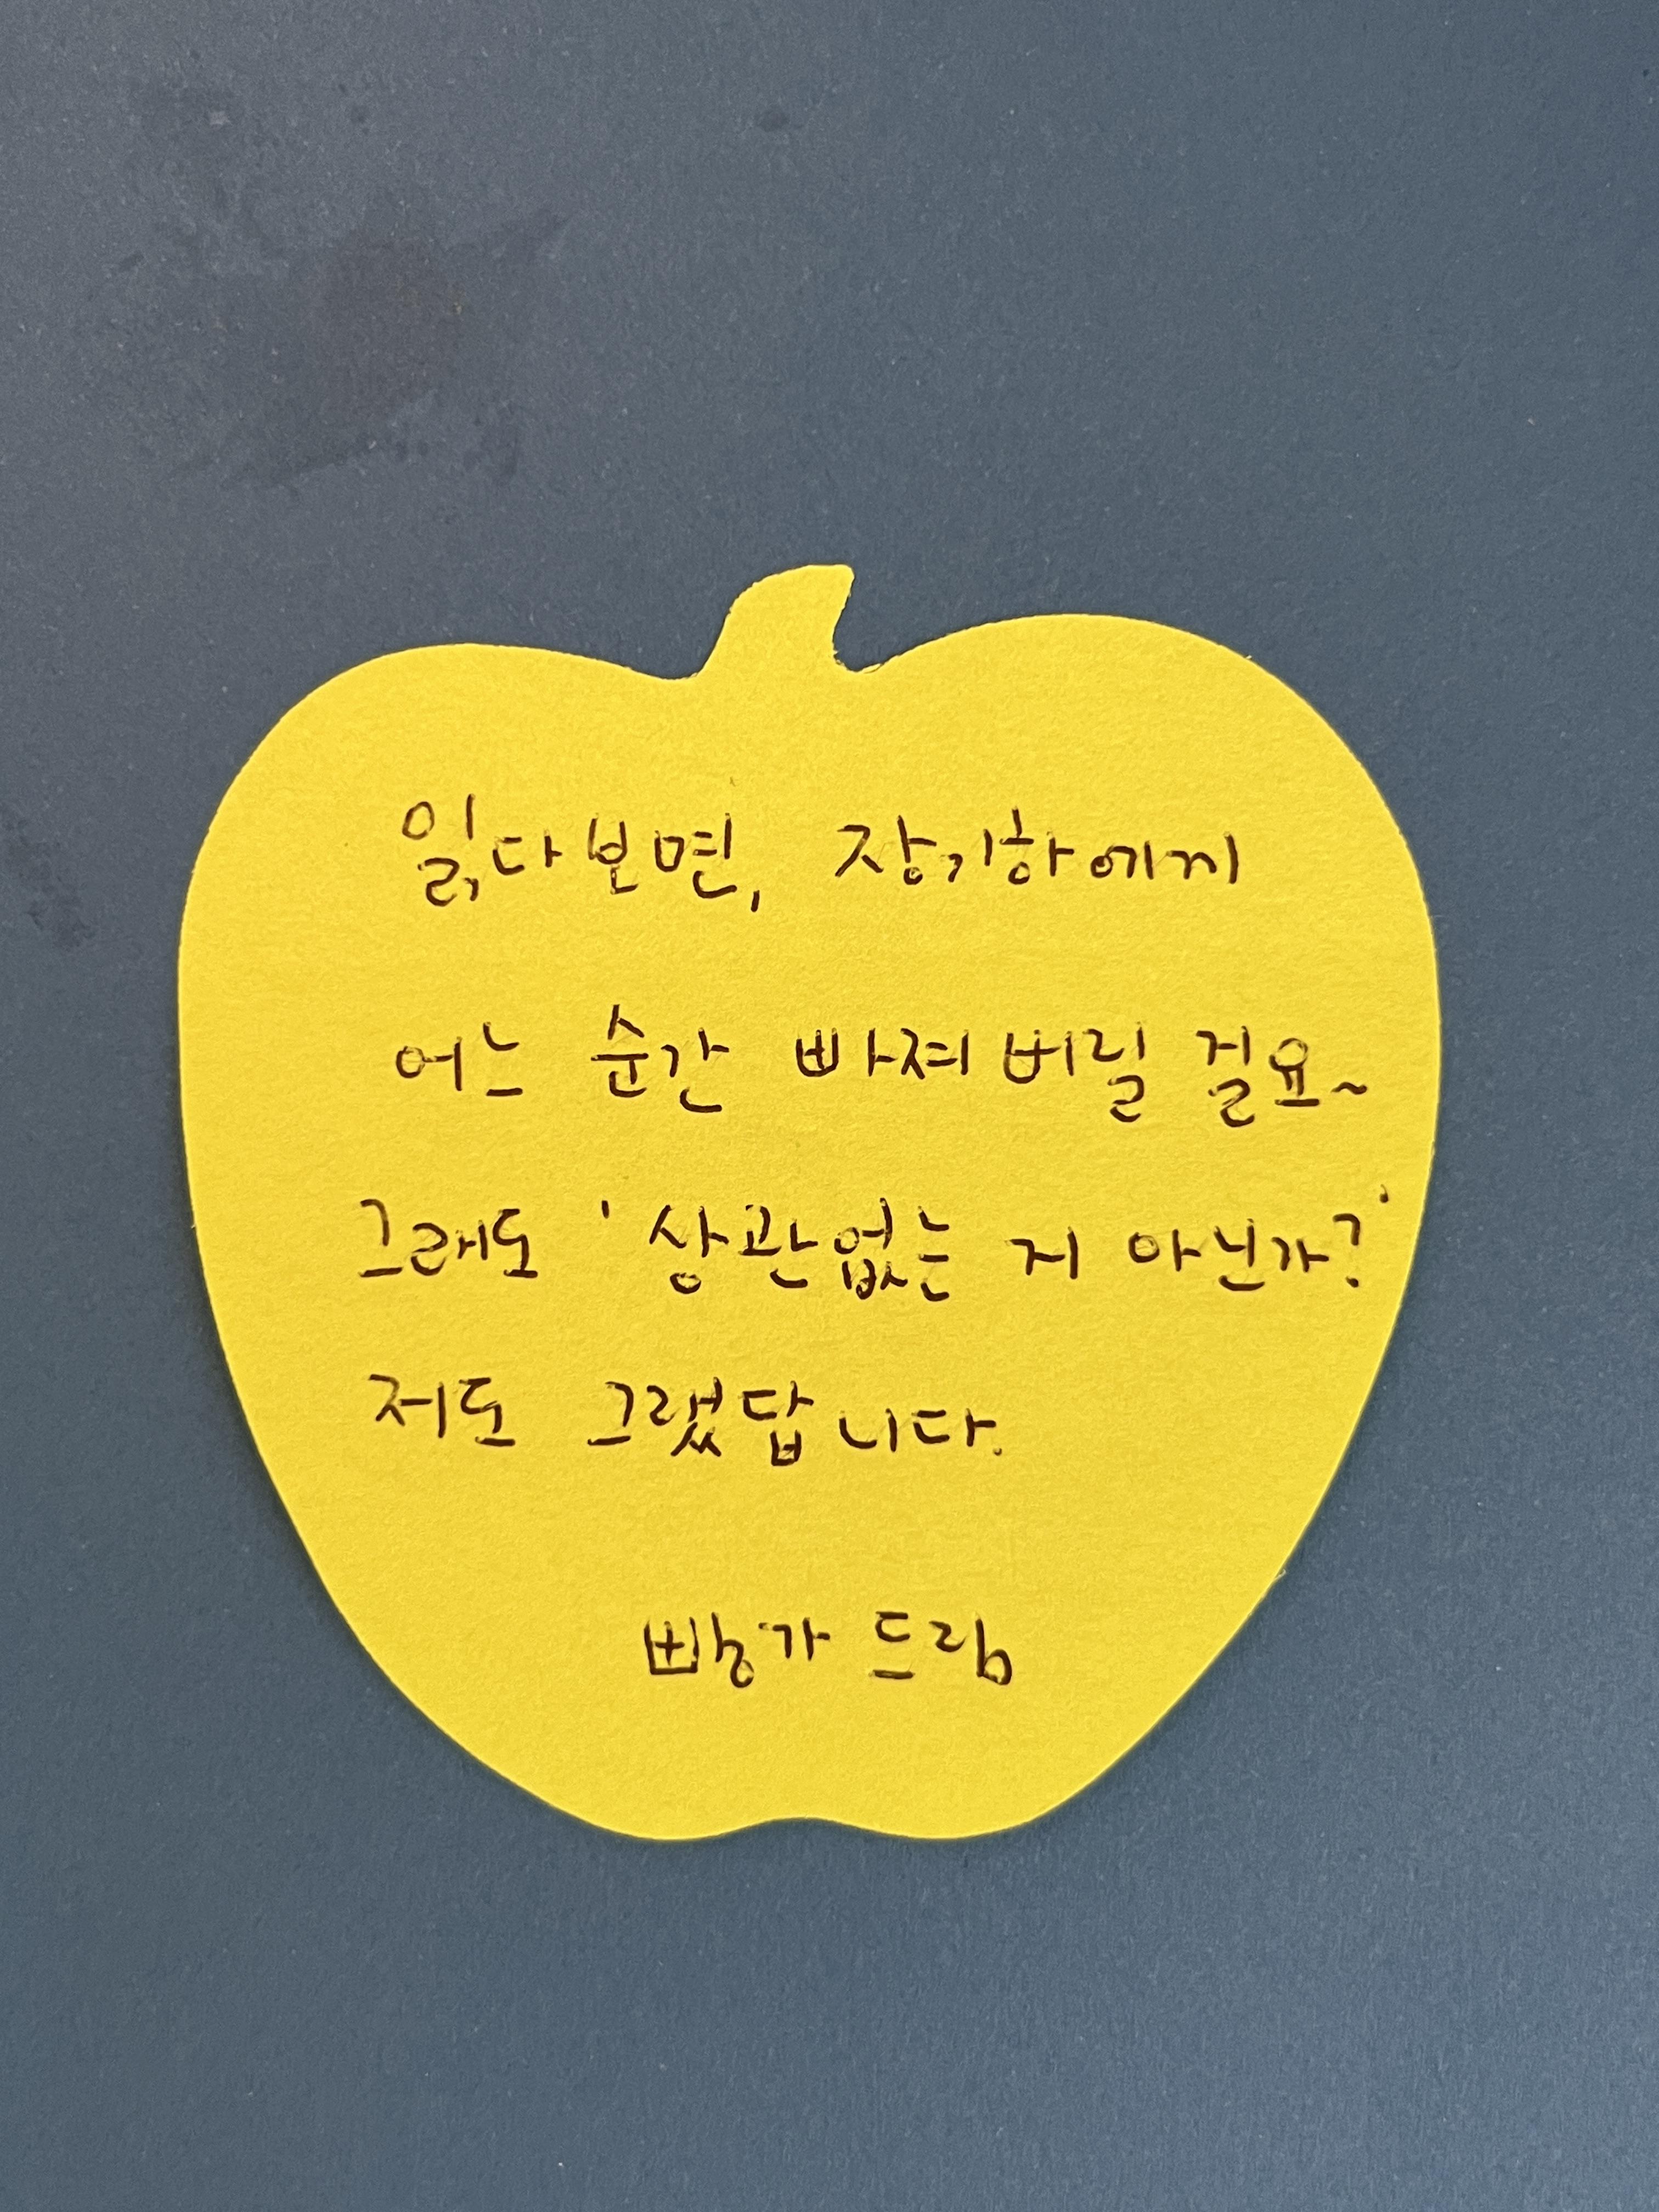 읽다보면, 장기하에게
어느 순간 빠져버릴 걸요~
그래도 '상관없는 거 아닌가?'
저도 그랬답니다.
빵가 드림